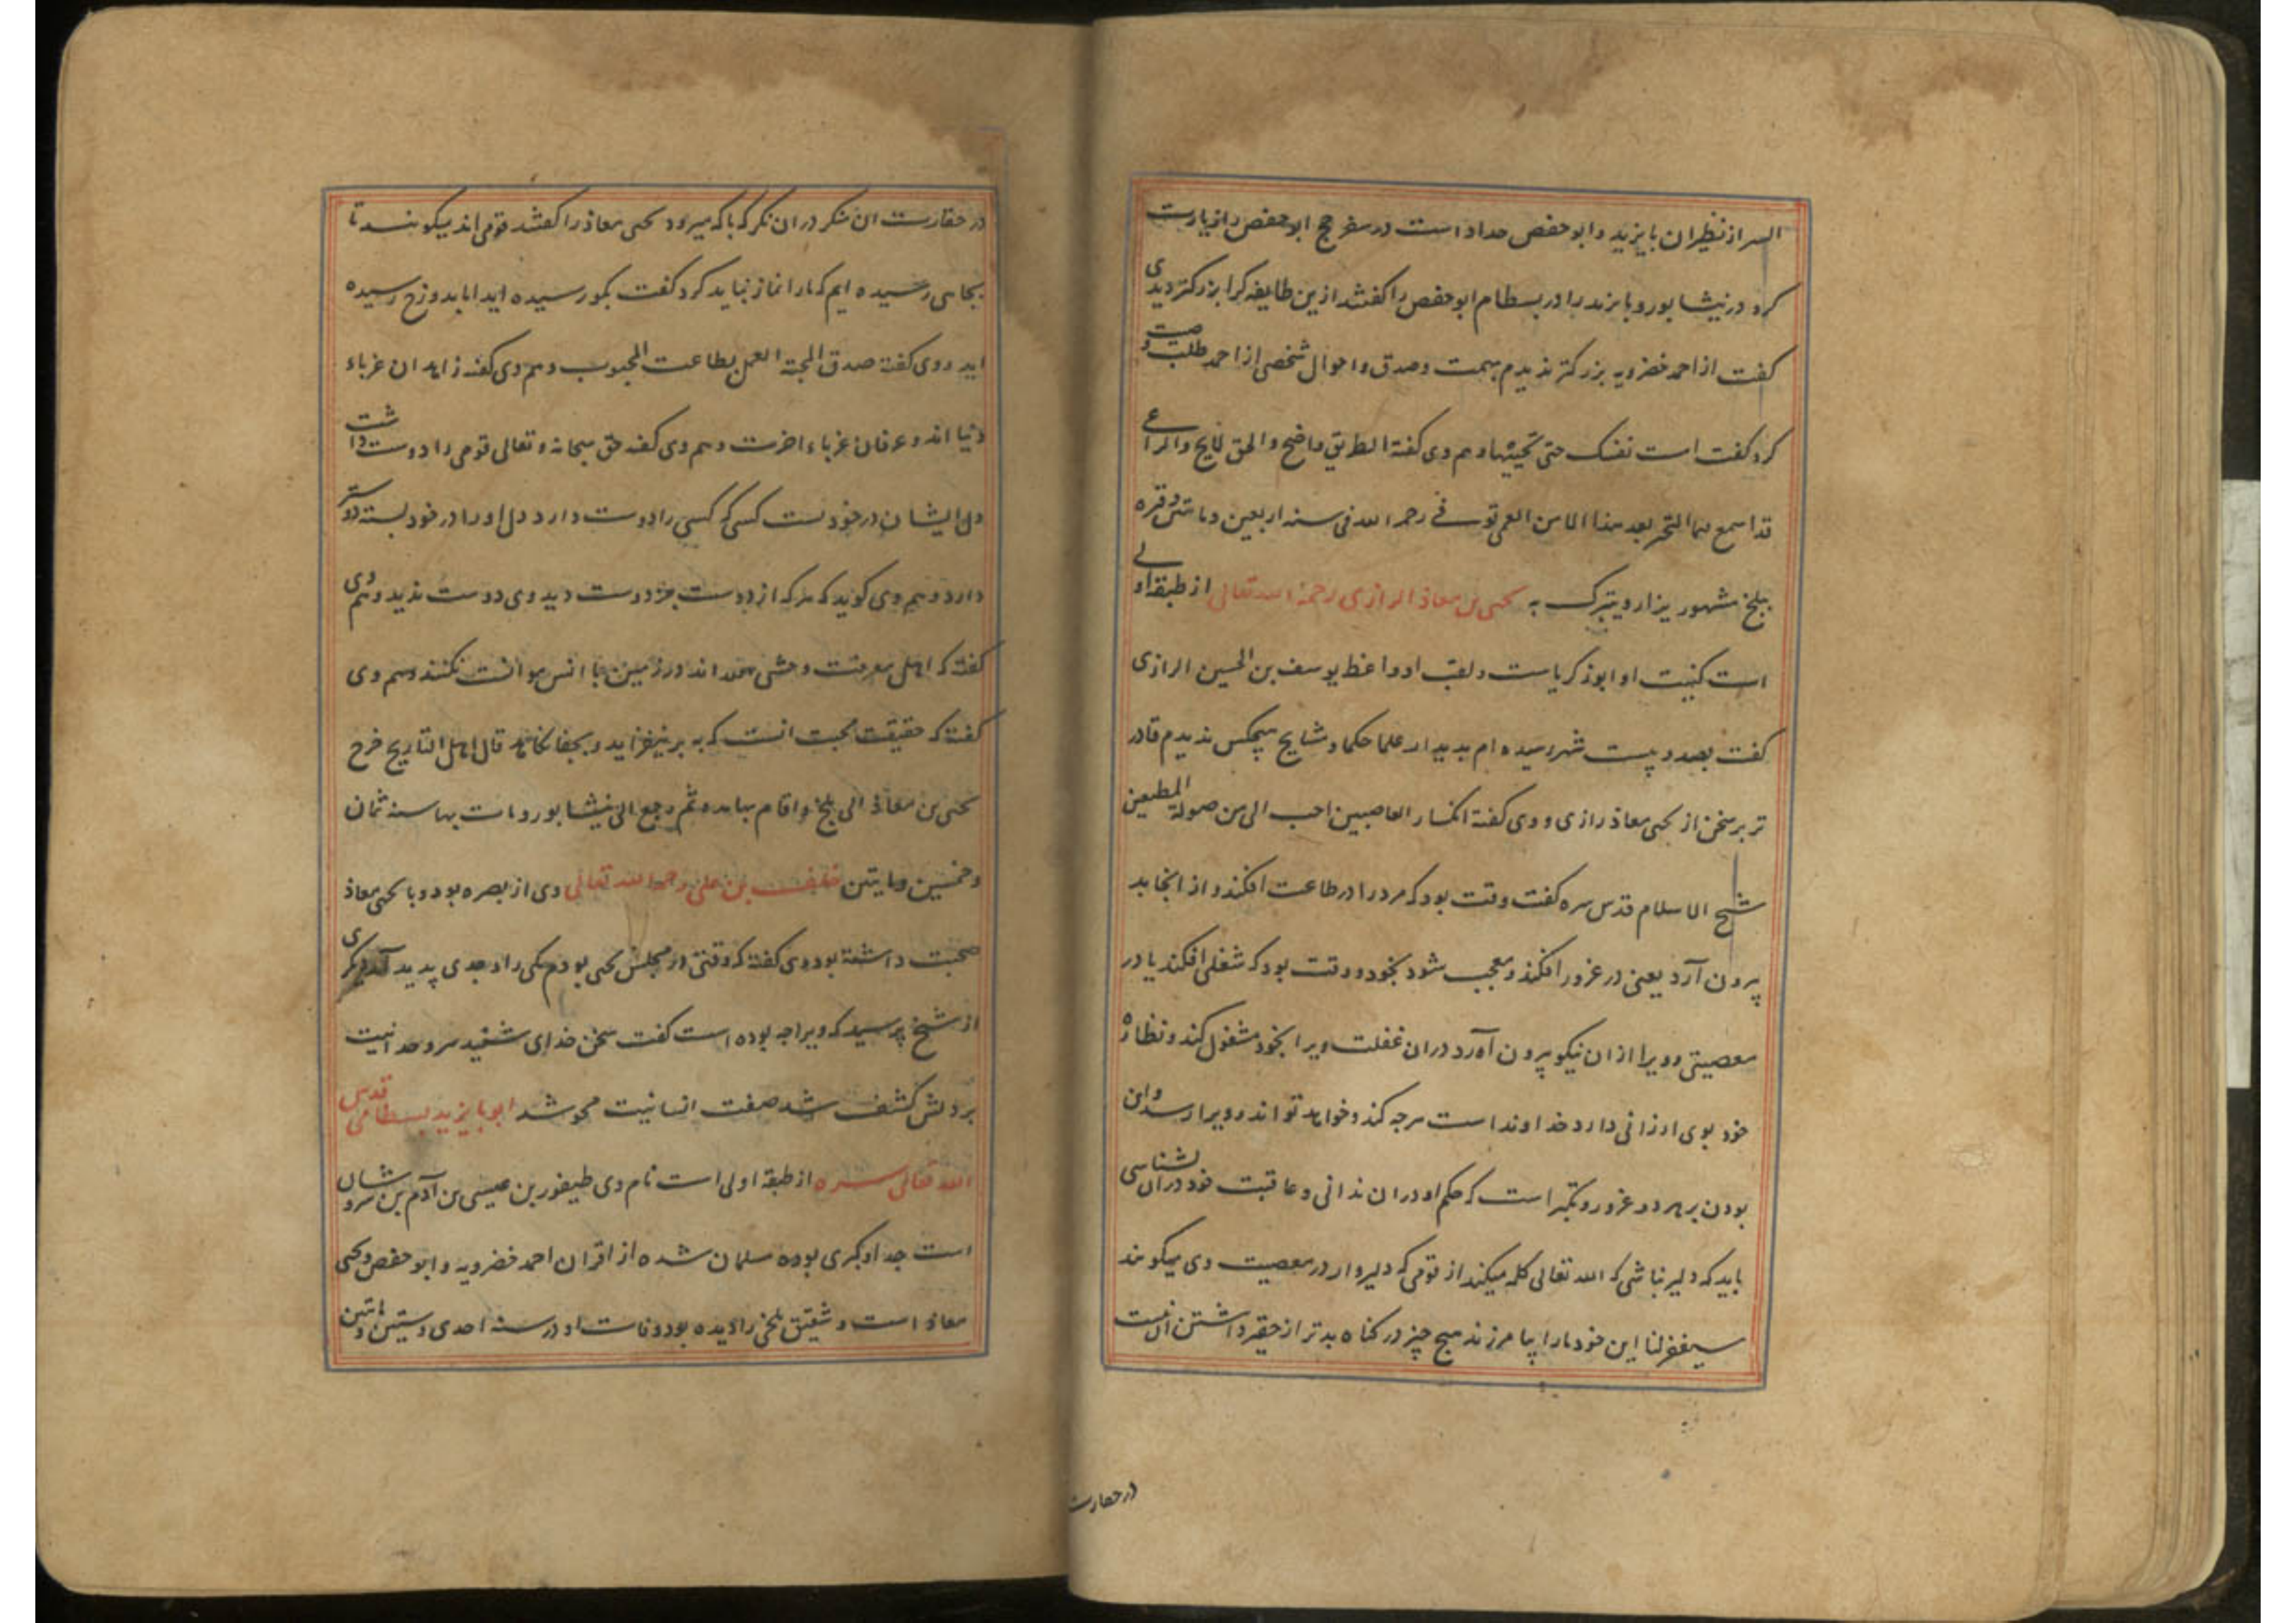 السر از نظیران بایزید و ابو حفص حداد است در سفر حج ابو حفص را زیارت
کرد در نیشابور و بایزید را در بسطام ابو حفص را کفتند ازین طایفه کرا بزرکتر دیدی
کفت از احمد خضرویه بزرکتر ندیدم بهمت و صدق و احوال شخصی از احمد طلب وصیت
کرد کفت امت نفسک حتی تحییها و هم وی کفته الطریق واضح و الحق لایح و الراعی
قد اسمع بعد هذا الا من العمی توفی رحمه الله فی سنه اربعین و ماتین و قبره
ببلخ مشهور یزار و یتبرک به یحیی بن معاذ الرازی رحمة الله تعالی از طبقه اولی
است کنیت او ابوزکریاست و لقب او واعظ یوسف بن الحسین الرازی
کفت بصد و بیست شهر رسیده ام بدیدار علما حکما و مشایخ هیچکس ندیدم قادر
تر بر سخن از یحیی معاذ رازی و وی کفته انکسار العاصیین احب الی من صولة المطیعین
شیخ الاسلام قدس سره کفت وقت بود که مرد را در طاعت افکند و از انجا بد
برون آرد یعنی در غرور افکند و معجب شود بخود و وقت بود که شغلی افکند یا در
معصیتی و ویرا از ان نیکو برون آورد در ان غفلت ویرا بخود مشغول کند و نظاره
خود بوی ارزانی دارد خداوند است هرجه کند و خواهد تواند و ویرا رسد و این
بودن بر هر دو غرور و تکبر است که حکم او در ان ندانی و عاقبت خود در ان نشناسی
باید که دلیر نباشی که الله تعالی کله میکند از قومی که دلیروار در معصیت وی میکویند
سیغفر لنا این خود مارا بیامرزند هیچ چیز در کناه بدتر از حقیر داشتن ان نیست
در حقارت
در حقارت ان منکر در ان نکر که با که میرود یحیی معاذ را کفتند قومی اند میکویند تا
بجایی رسیده ایم که مارا نماز نباید کرد کفت بکو رسیده اید اما بدوزخ رسیده
اید و وی کفته صدق المحبة العمل بطاعت المحبوب و هم وی کفته زاهدان غرباء
دنیا اند و عرفان غرباء اخرت و هم وی کفته حق سبحانه و تعالی قومی را دوست داشت
دل ایشان در خود بست کسی که کسی را دوست دارد دل او را در خود بسته دوستر
دارد و هم وی کوید که هر که از دوست جز دوست دید وی دوست ندید و هم وی
کفته که اهل معرفت وحشی الله اند در زمین با انس موانست نکنند و هم وی
کفته که حقیقت محبت انست که به بر نیفزاید و بجفا نکاهد قال اهل التاریخ خرج
یحیی بن معاذ الی بلخ و اقام بها مده ثم رجع الی نیشابور و مات بها سنه ثمان
و خمسین و مایتین خلف بن علی رحمه الله تعالی وی از بصره بود و با یحیی معاذ
صحبت داشته بود وی کفته که وقتی در مجلس یحیی بودم یکی را وجدی پدید آمد دیکری
از شیخ پرسید که ویرا جه بوده است کفت سخن خدای شنید سر وحدانیت
بر دلش کشف شد صفت انسانیت محو شد ابو بایزید بسطامی قدس
الله تعالی سره از طبقه اولی است نام وی طیفور بن عیسی بن آدم بن سروشان
است جد او کبری بوده مسلمان شده از اقران احمد خضرویه و ابو حفص و یحیی
معاذ است و شقیق بلخی را دیده بود وفات او در سنه احدی و ستین و ماتین